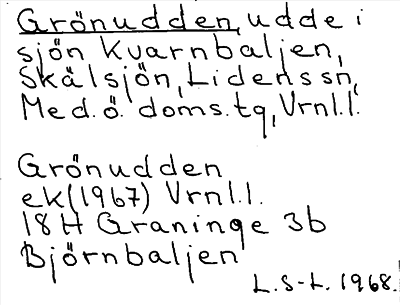 Grönudden, udde i
sjön Kvarnbaljen,
Skälsjön, Lidens sn,
Med.ö. doms.tg, Vrnl.l.
Grönudden
ek(1967) Vrnl.l.
18 H Graninge 3b
Björnbaljen
L.S-L. 1968.